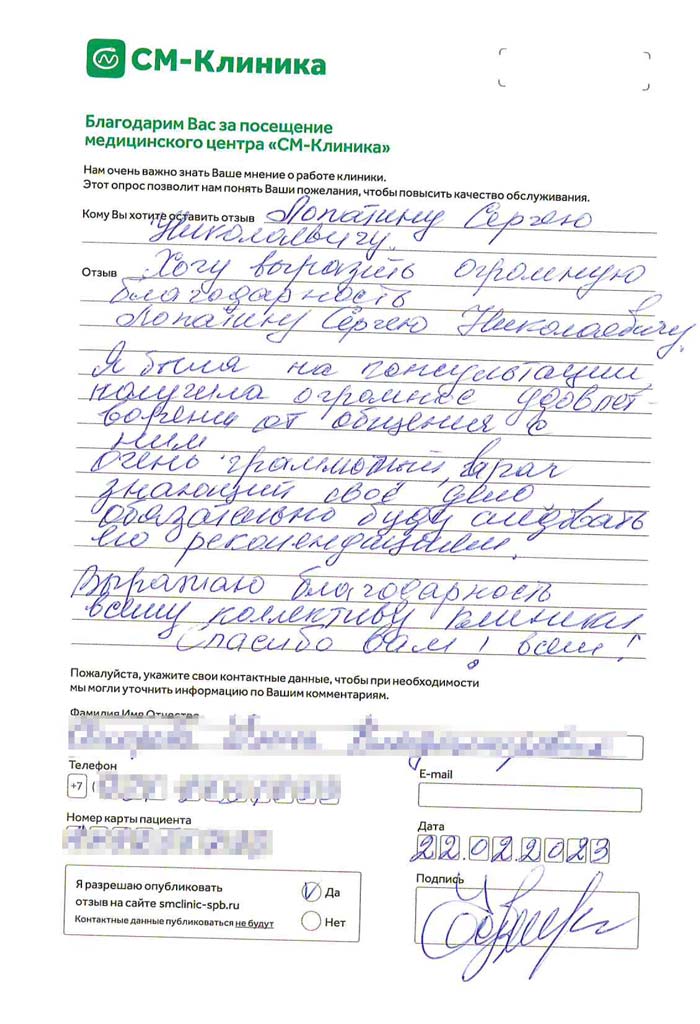 СМ-Клиника
Благодарим Вас за посещение
медицинского центра «СМ-Клиника»
Нам очень важно знать Ваше мнение о работе клиники.
Этот опрос позволит нам понять Ваши пожелания, чтобы повысить качество обслуживания.
Кому Вы хотите оставить отзыв Лопатину Сергею
Николаевичу.
Отзыв Хочу выразить огромную
благодарность
Лопатину Сергею Николаевичу.
Я была на консультации,
получила огромное удовлет-
ворение от общения с
ним
очень грамотный, врач
знающий своё дело
обязательно буду следовать
его рекомендациям.
Выражаю благодарность
всему коллективу клиники
Спасибо вам! всем!
Пожалуйста, укажите свои контактные данные, чтобы при необходимости
мы могли уточнить информацию по Вашим комментариям.
Фамилия Имя Отчество
Телефон
E-mail
+7 (
Номер карты пациента
Дата
22.02.2023
Подпись
Я разрешаю опубликовать
отзыв на сайте smclinic-spb.ru
Контактные данные публиковаться не будут
Да
Нет